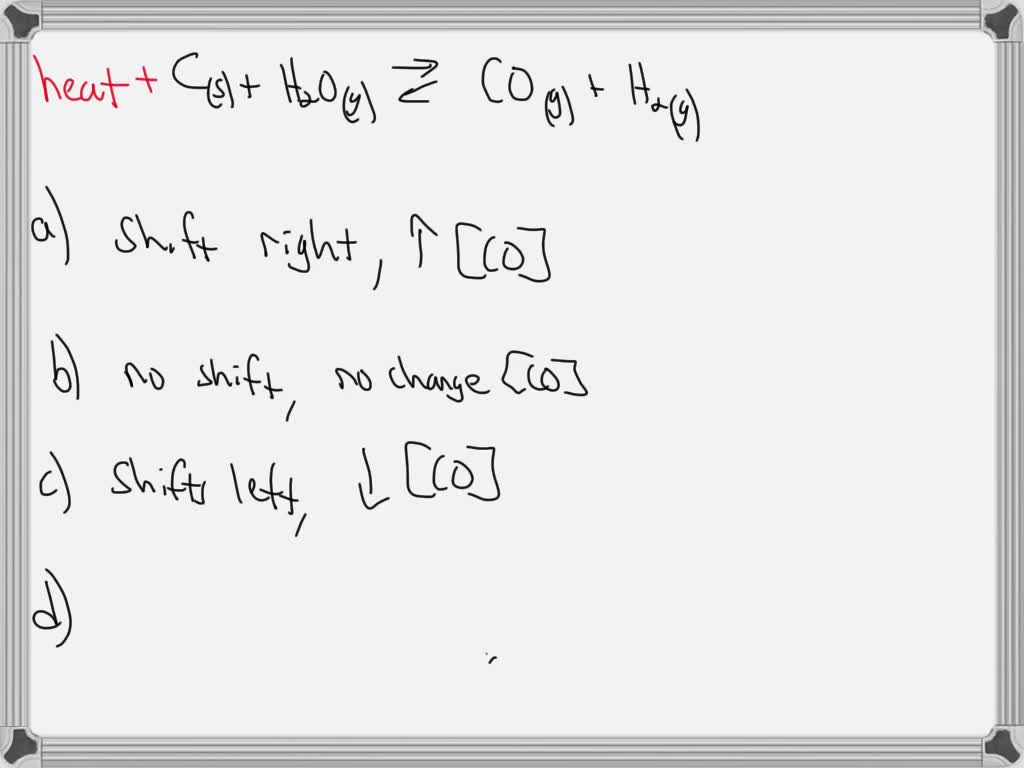 heat + C(s) + H₂O(g) ⇄ CO(g) + H₂(g)
a) shift right, ↑ [CO]
b) no shift, no change [CO]
c) shifts left, ↓ [CO]
d)